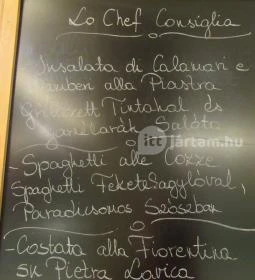 Lo Chef Consiglia
Insalata di Calamari e
Gamberi alla Piastra
Grillezett Tintahal és
Garnélarák Saláta
- Spaghetti alle Cozze
Spaghetti Feketekagylóval,
Paradicsomos Szószban
- Costata alla Fiorentina
su Pietra Lavica
itt jártam.hu